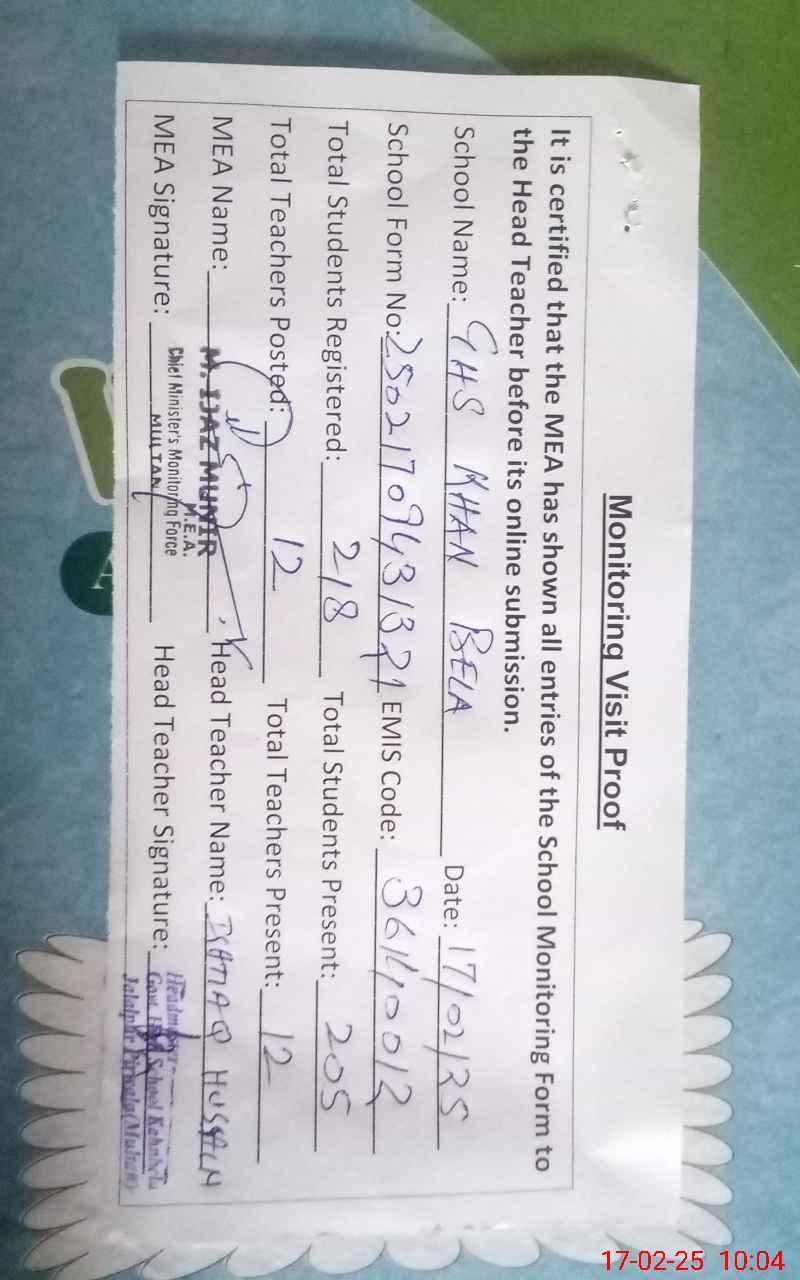 Monitoring Visit Proof
It is certified that the MEA has shown all entries of the School Monitoring Form to
the Head Teacher before its online submission.
School Name: GHS KHAN BELA Date: 17/02/25
School Form No: 25021709431321 EMIS Code: 36140012
Total Students Registered: 218 Total Students Present: 205
Total Teachers Posted: 12 Total Teachers Present: 12
MEA Name: M. IJAZ MUNIR Head Teacher Name: ISHTIAQ HUSSAIN
M.E.A.
Chief Minister's Monitoring Force
MULTAN
MEA Signature: Head Teacher Signature:
Headmaster
Govt. High School Kahnbela
Jalalpur Pirwala (Multan)
17-02-25 10:04